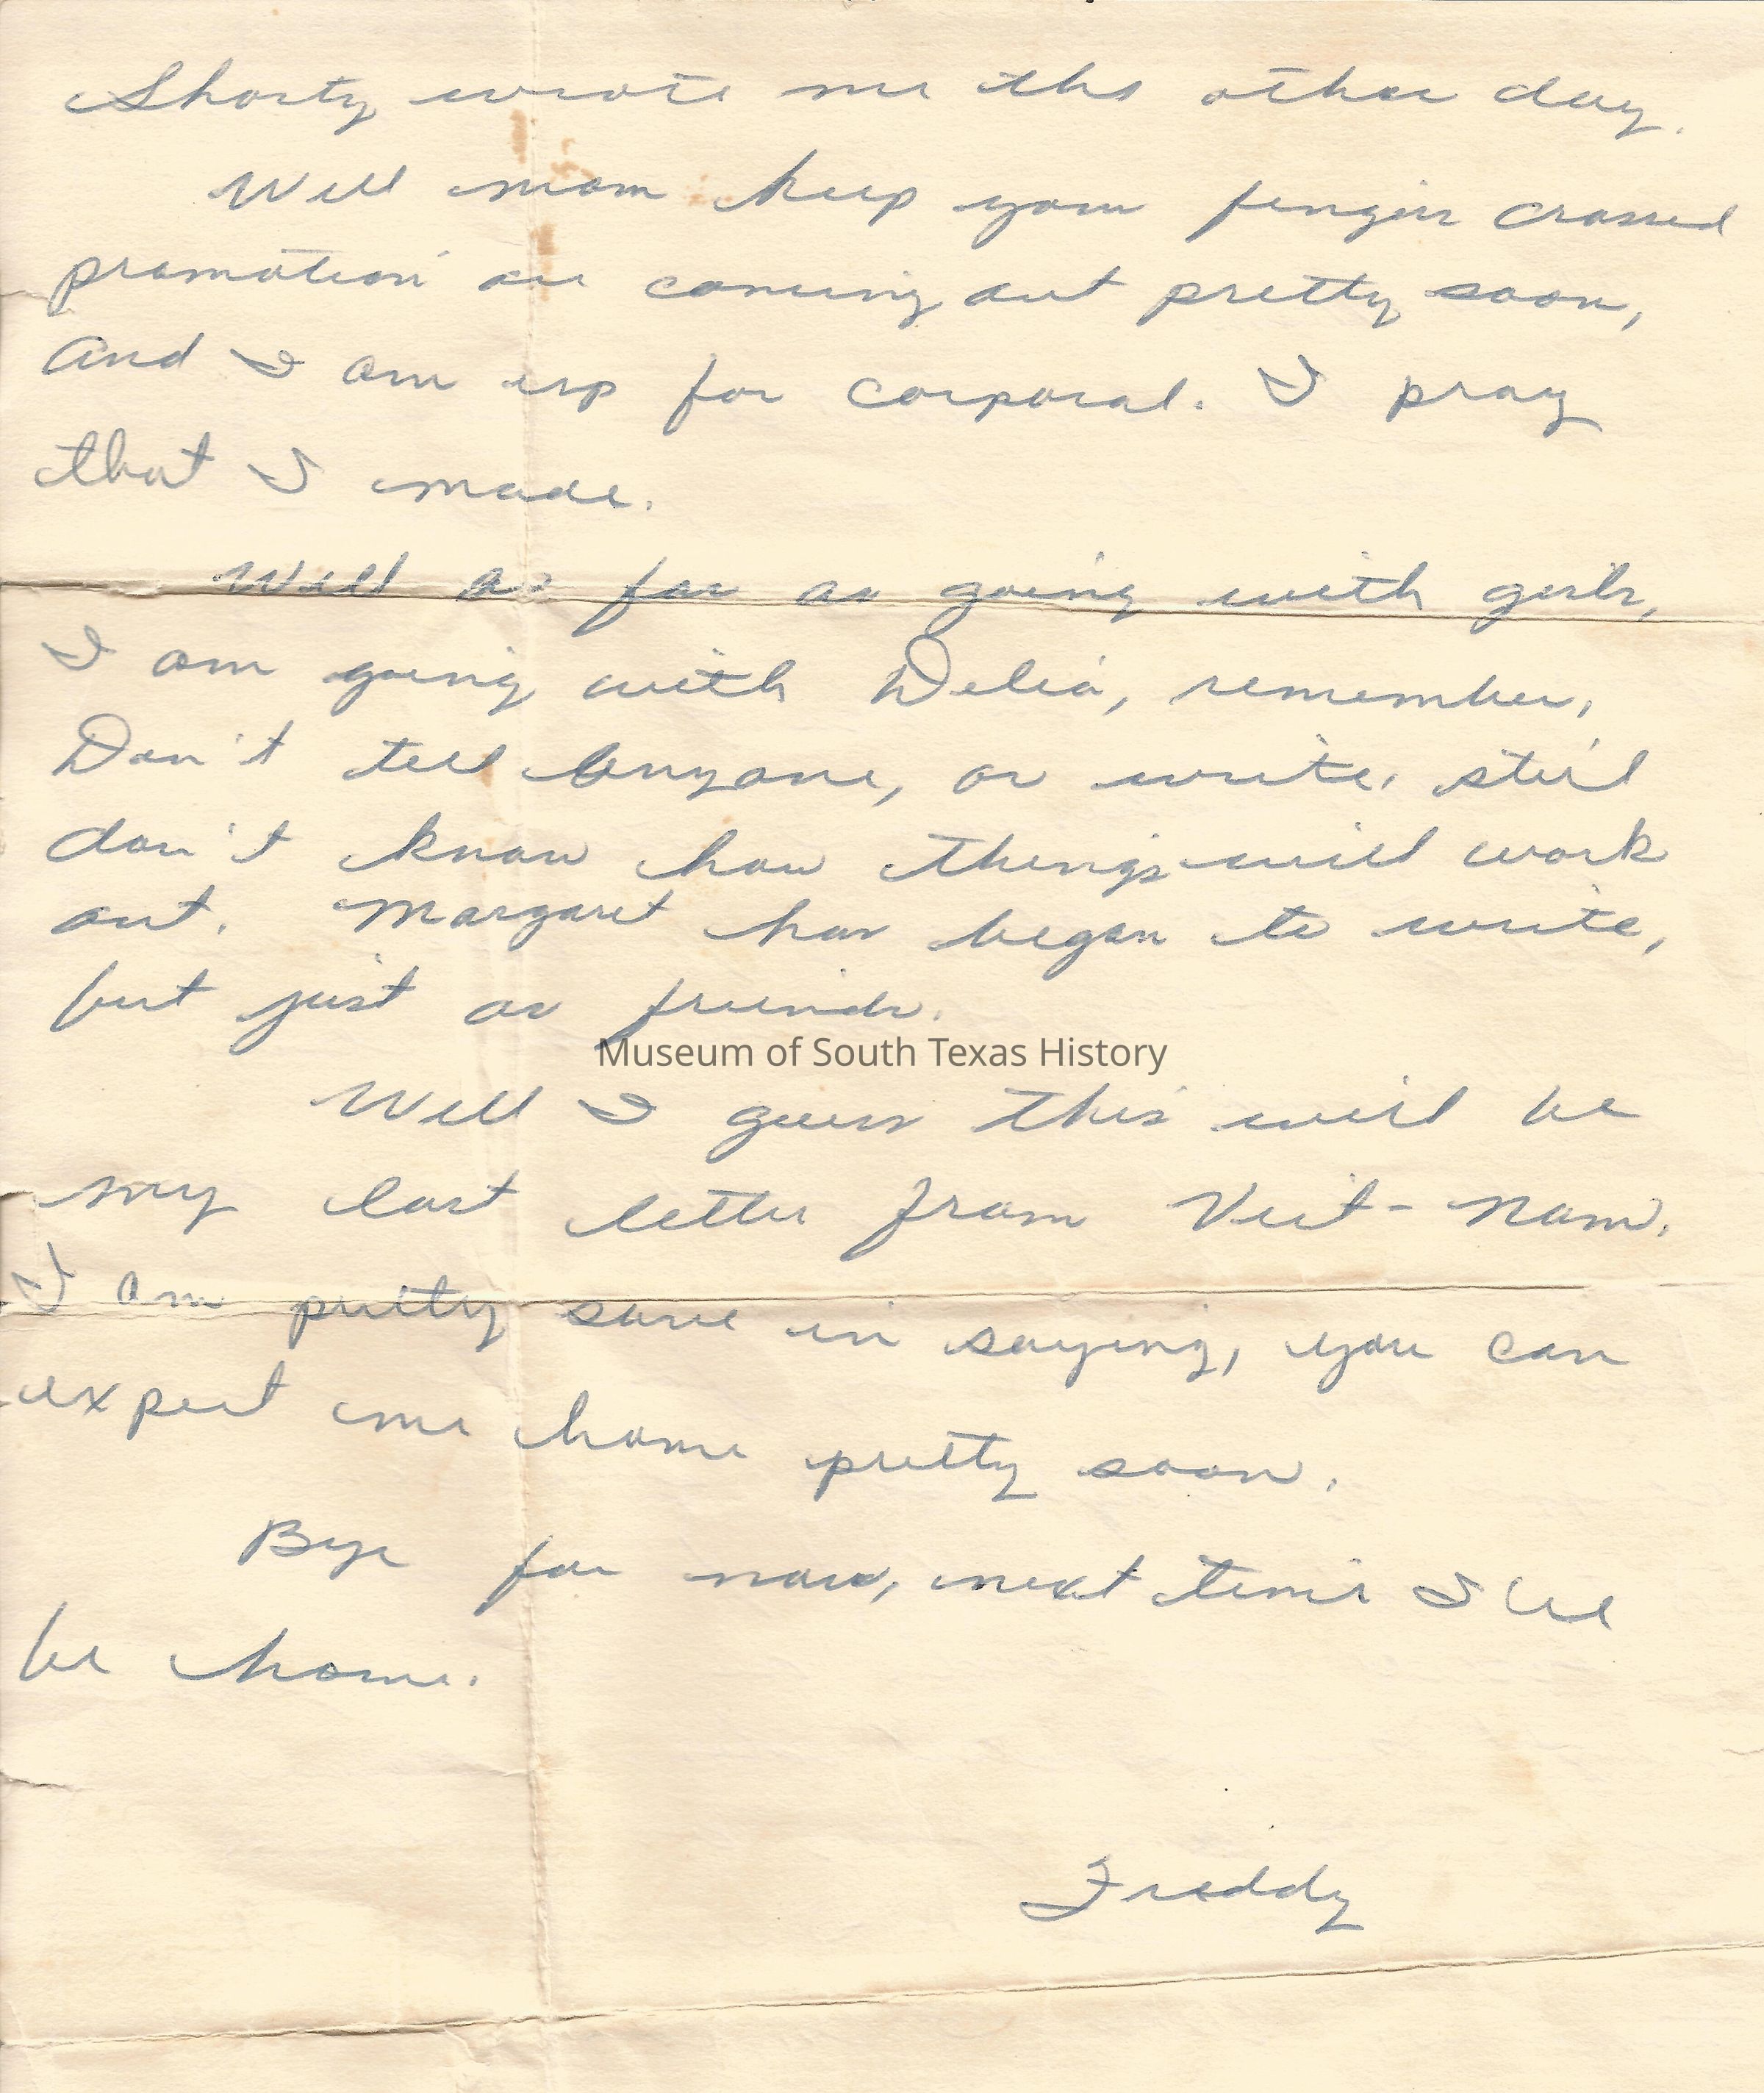 Shorty wrote me the other day.
Well mom keep your fingers crossed
promotion are coming out pretty soon,
and I am up for corporal. I pray
that I made.
Well as far as going with girls,
I am going with Delia, remember,
Don't tell anyone, or write, still
don't know how things will work
out. Margaret has began to write,
but just as friends.
Museum of South Texas History
Well I guess this will be
my last letter from Viet-Nam.
I am pretty sure in saying, you can
expect me home pretty soon.
Bye for now, next time I'll
be home.
Freddy